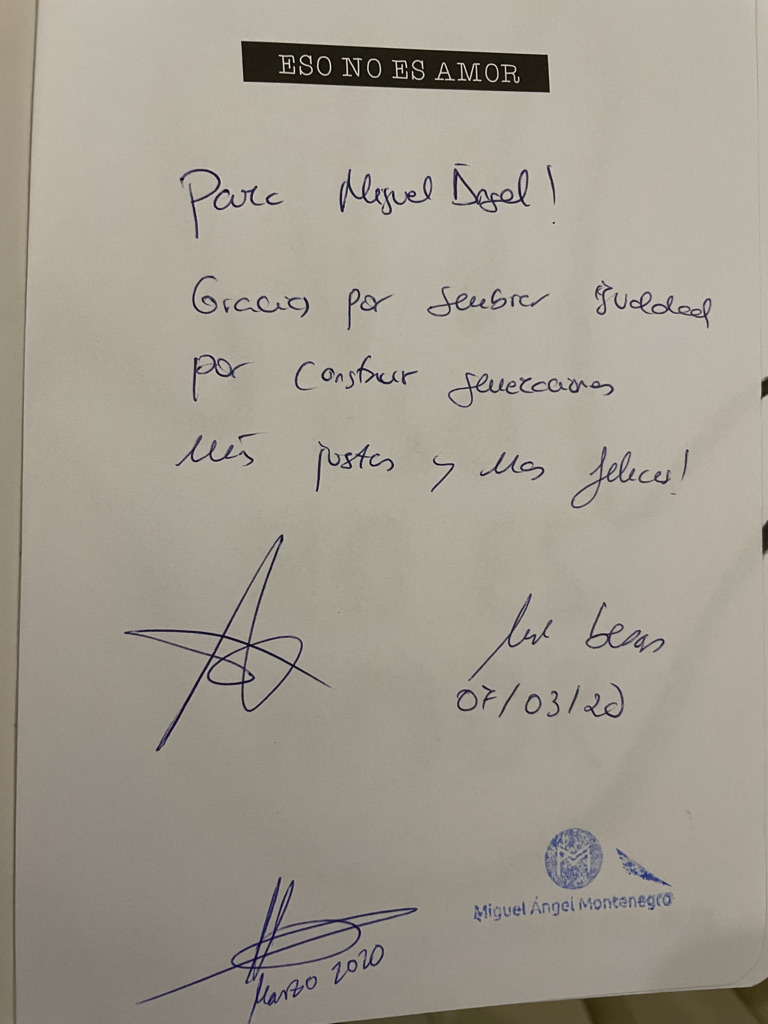 ESO NO ES AMOR
Para Miguel Ángel!
Gracias por sembrar igualdad
por construir generaciones
más justas y más felices!
besos
07/03/20
Miguel Ángel Montenegro
Marzo 2020